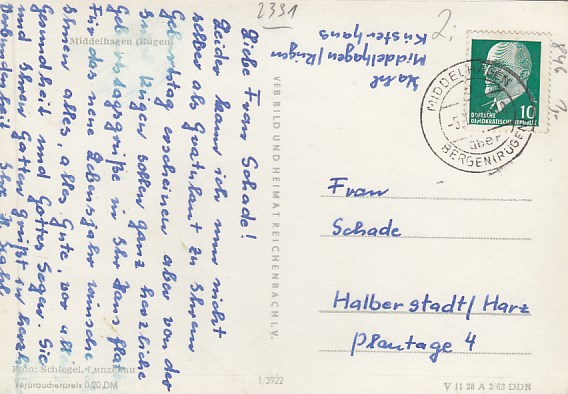 2331
2,-
846 1,-
Middelhagen (Rügen)
Liebe Frau Schade!
Leider kann ich nun nicht
selber als Gratulant zu Ihrem
Geburtstag erscheinen aber von der
Insel Rügen sollen ganz herzliche
Geburtstagsgrüße in Ihr Haus
Für das neue Lebensjahr wünsche
Ihnen alles, alles Gute, vor
Gesundheit und Gottes Segen. Sie
und Ihren Gatten grüßt in
Verbundenheit Ihre
Foto: Schlegel, Lunzenau
Verbraucherpreis 0,20 DM
VEB BILD UND HEIMAT REICHENBACH I. V.
1/3922
Middelhagen/Rügen
Küsterhaus
DEUTSCHE
DEMOKRATISCHE REPUBLIK
10
MIDDELHAGEN
über
BERGEN (RÜGEN)
Frau
Schade
Halberstadt/Harz
Plantage 4
V 11 28 A 2/63 DDR